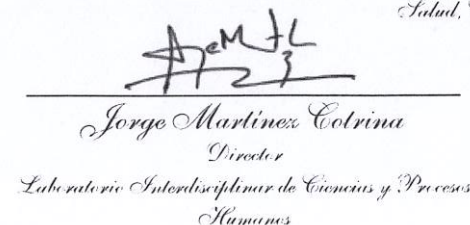 Salud,
Jorge Martínez Cotrina
Director
Laboratorio Interdisciplinar de Ciencias y Procesos
Humanos